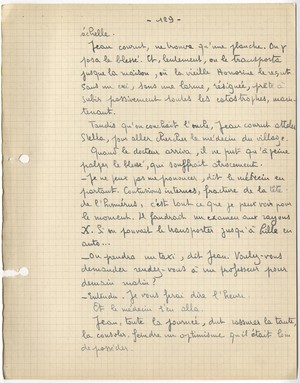 - 129 -
échelle.
Jean courut, ne trouva qu'une planche. On y
posa le blessé. Et, lentement, on le transporta
jusque la maison, où la vieille Honorine le reçut
sans un cri, sans une larme, résignée, prête à
subir passivement toutes les catastrophes, main-
tenant.
Tandis qu'on couchait l'oncle, Jean courut atteler
Stella, pour aller chercher le médecin du village.
Quand le docteur arriva, il ne put qu'à peine
palper le blessé, que souffrait atrocement.
- Je ne peux pas me prononcer, dit le médecin en
partant. Contusions internes, fracture de la tête
de l'humérus, c'est tout ce que je peux voir pour
le moment. Il faudrait un examen aux rayons
X. Si on pouvait le transporter jusqu'à Lille en
auto...
- On prendra un taxi, dit Jean. Voulez-vous
demander rendez-vous à un professeur pour
demain matin?
- Entendu. Je vous ferai dire l'heure.
Et le médecin s'en alla.
Jean, toute la journée, dut rassurer la tante,
la consoler, feindre un optimisme qu'il était loin
de posséder.